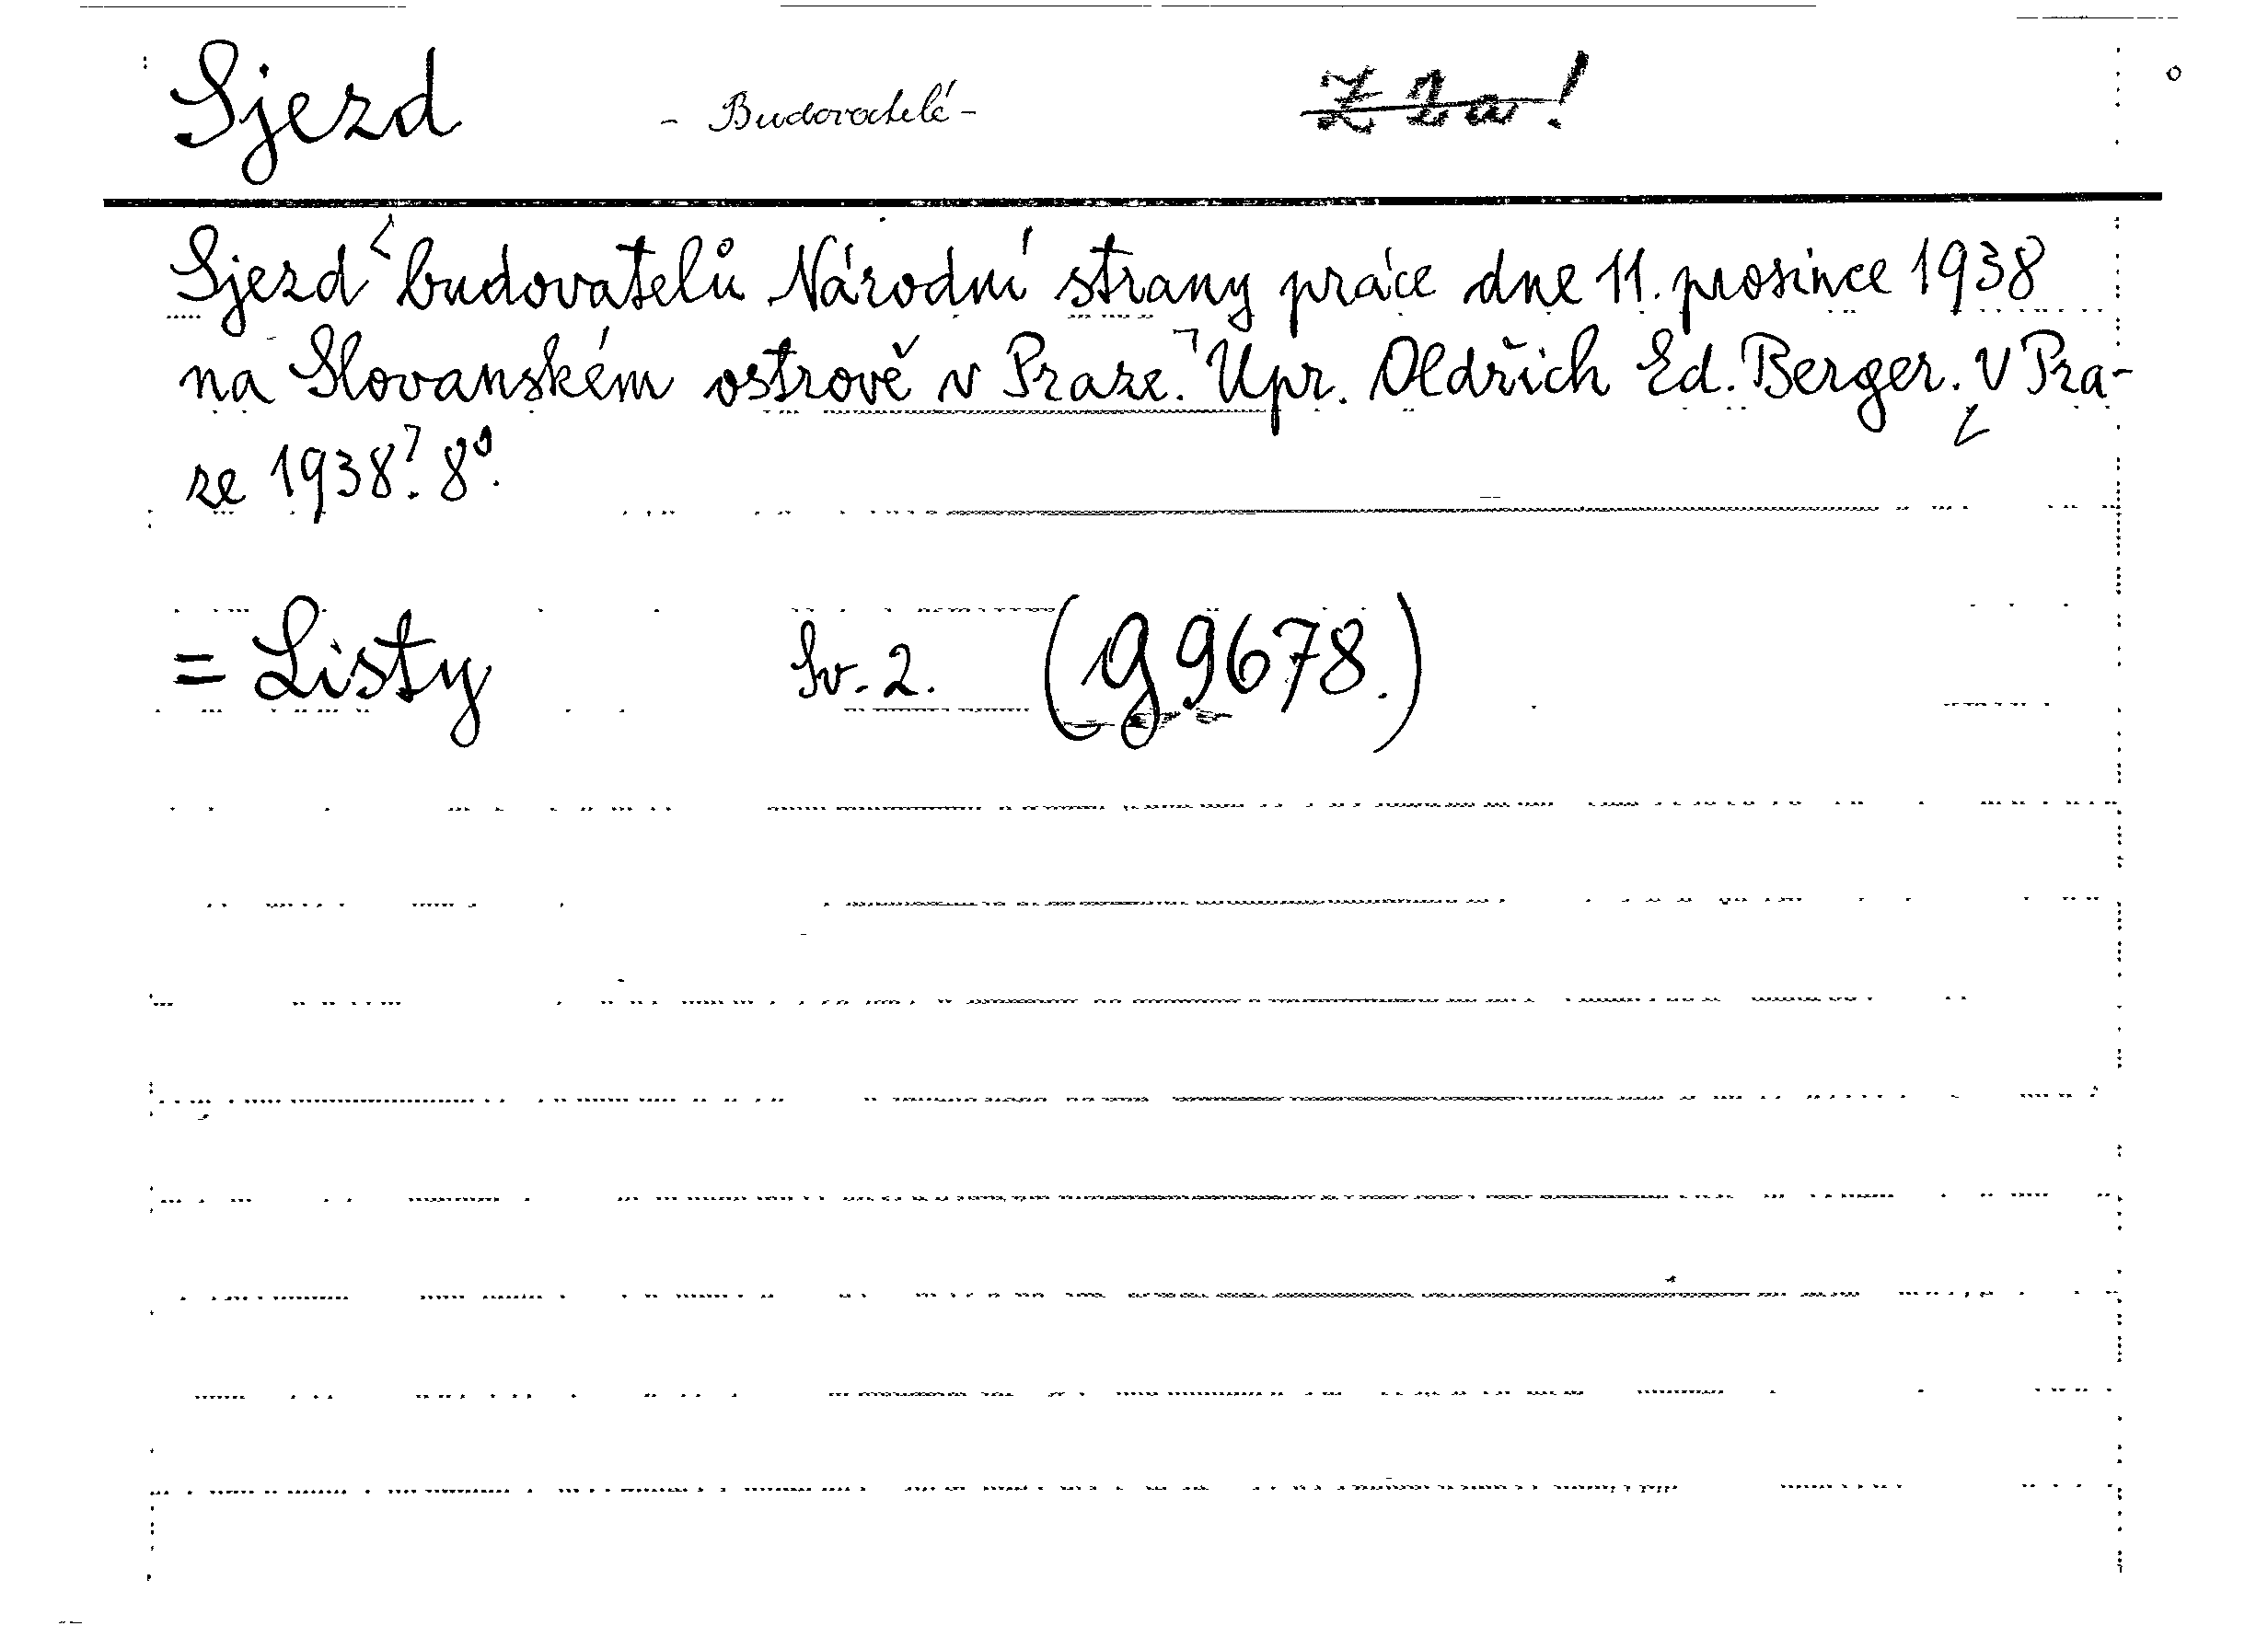 Sjezd - Budovatelé - Z 2a!
Sjezd budovatelů Národní strany práce dne 11. prosince 1938
na Slovanském ostrově v Praze. Upr. Oldřich Ed. Berger. V Pra-
ze 1938?. 8°.
= Listy Sv. 2. (g 9678.)